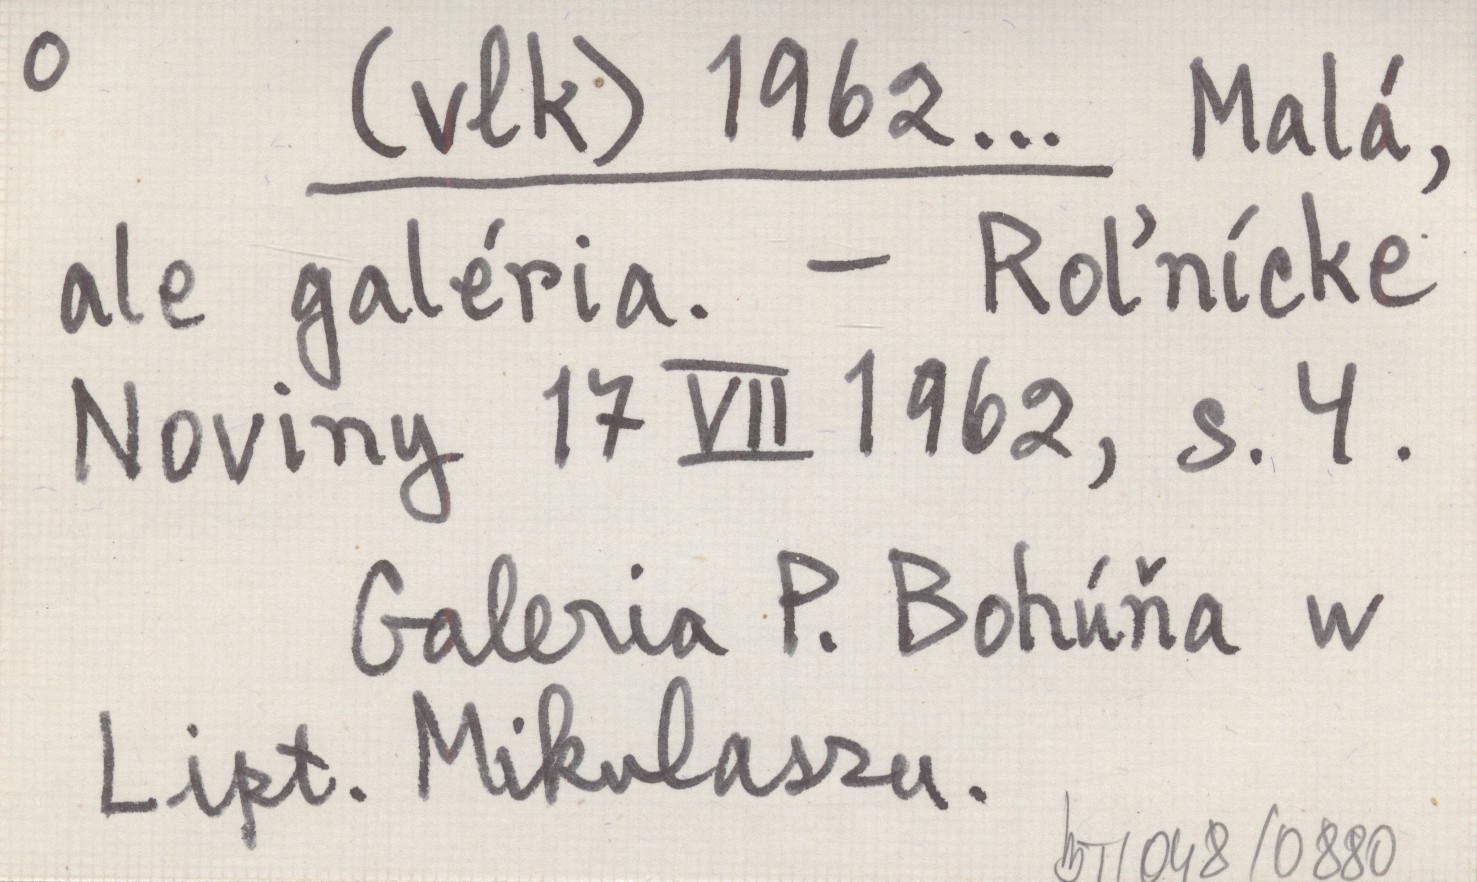 o (vlk) 1962... Malá,
ale galéria. – Roľnícke
Noviny 17 VII 1962, s. 4.
Galeria P. Bohúňa w
Lipt. Mikulaszu.
/048/0880